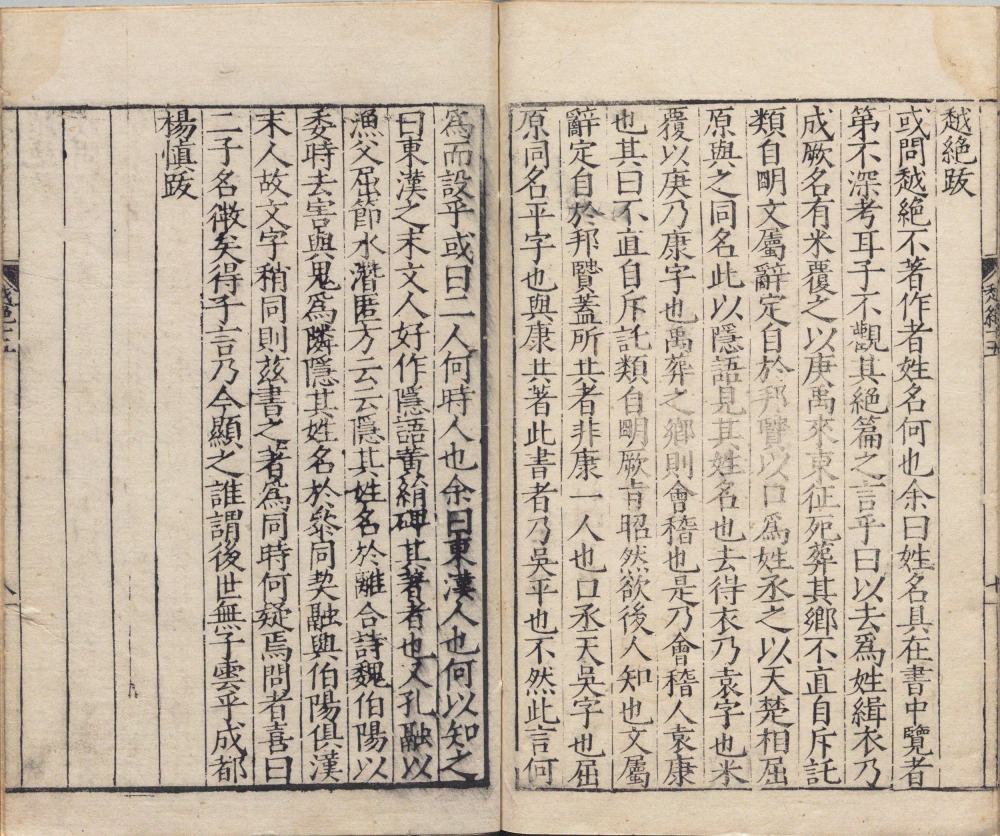 越絕跋
或問越絕不著作者姓名何也余曰姓名具在書中覽者
第不深考耳子不觀其絕篇之言乎曰以去爲姓緝衣乃
成厥名有米覆之以庚禹來東征死葬其鄉不直自斥託
類自明文屬辭定自於邦賢以口爲姓丞之以天楚相屈
原與之同名此以隱語見其姓名也去得衣乃袁字也米
覆以庚乃康字也禹葬之鄉則會稽也是乃會稽人袁康
也其曰不直自斥託類自明厥旨昭然欲後人知也文屬
辭定自於邦賢蓋所共者非康一人也口丞天吳字也屈
原同名平字也與康共著此書者乃吳平也不然此言何
爲而設乎或曰二人何時人也余曰東漢人也何以知之
曰東漢之末文人好作隱語黃絹碑其著者也又孔融以
漁父屈節水潛匿方云云隱其姓名於離合詩魏伯陽以
委時去害與鬼爲隣隱其姓名於叅同契融與伯陽俱漢
末人故文字稍同則茲書之著爲同時何疑焉問者喜曰
二子名微矣得子言乃今顯之誰謂後世無子雲乎成都
楊慎跋